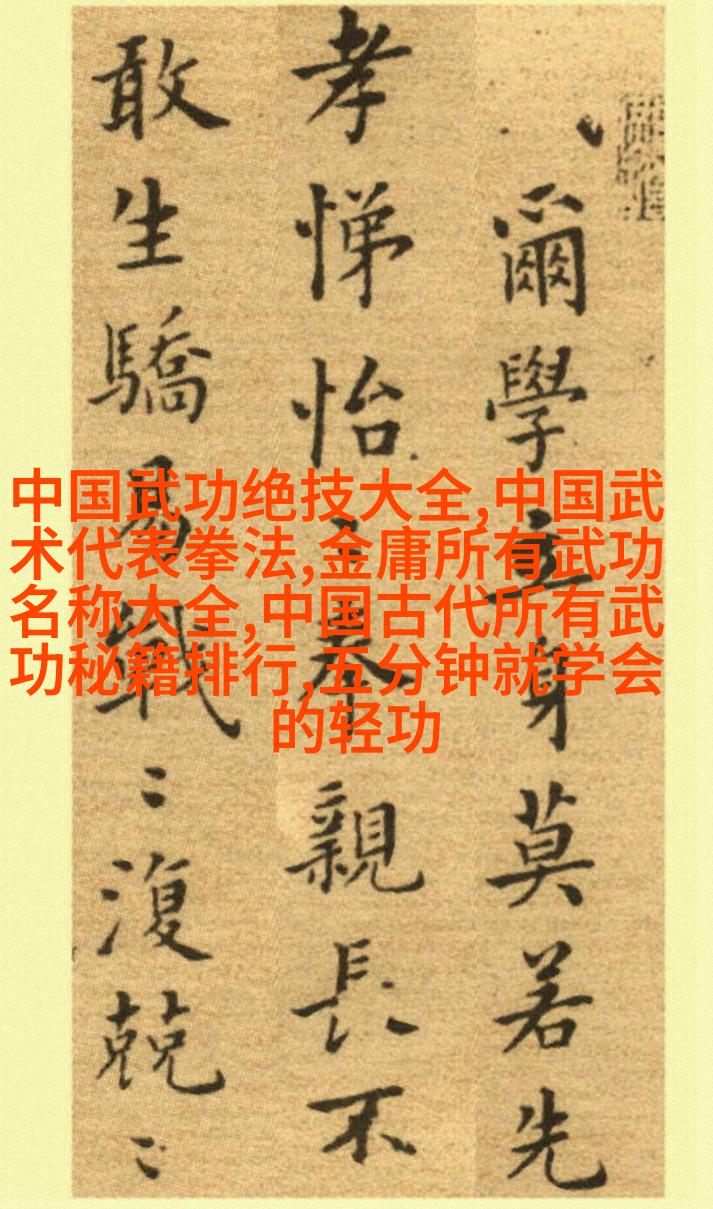 爾學立身莫若先
孝悌怡〻奉親長不
敢生驕易戰〻復兢〻
中国武功绝技大全,中国武
术代表拳法,金庸所有武功
名称大全,中国古代所有武
功秘籍排行,五分钟就学会
的轻功